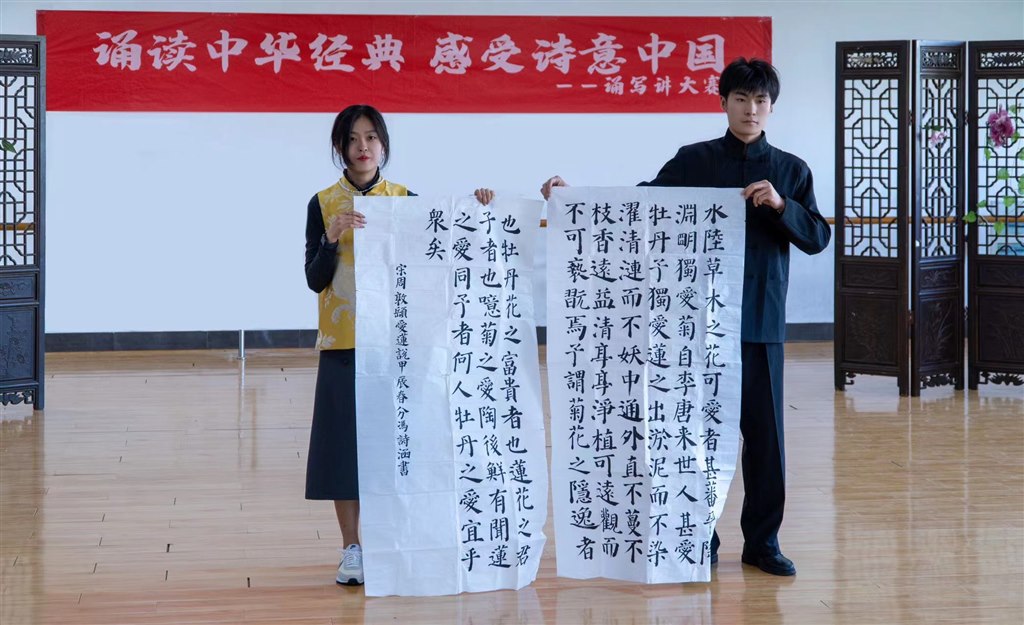 诵读中华经典 感受诗意中国
——诵写讲大赛
水陸草木之花可愛者甚蕃
淵明獨愛菊自李唐来世人甚愛
牡丹予獨愛蓮之出淤泥而不染
濯清漣而不妖中通外直不蔓不
枝香遠益清亭亭淨植可遠觀而
不可褻翫焉予謂菊花之隱逸者
也牡丹花之富貴者也蓮花之君
子者也噫菊之愛陶後鮮有聞蓮
之愛同予者何人牡丹之愛宜乎
眾矣
宋周敦頤愛蓮說甲辰春分馮詩涵書